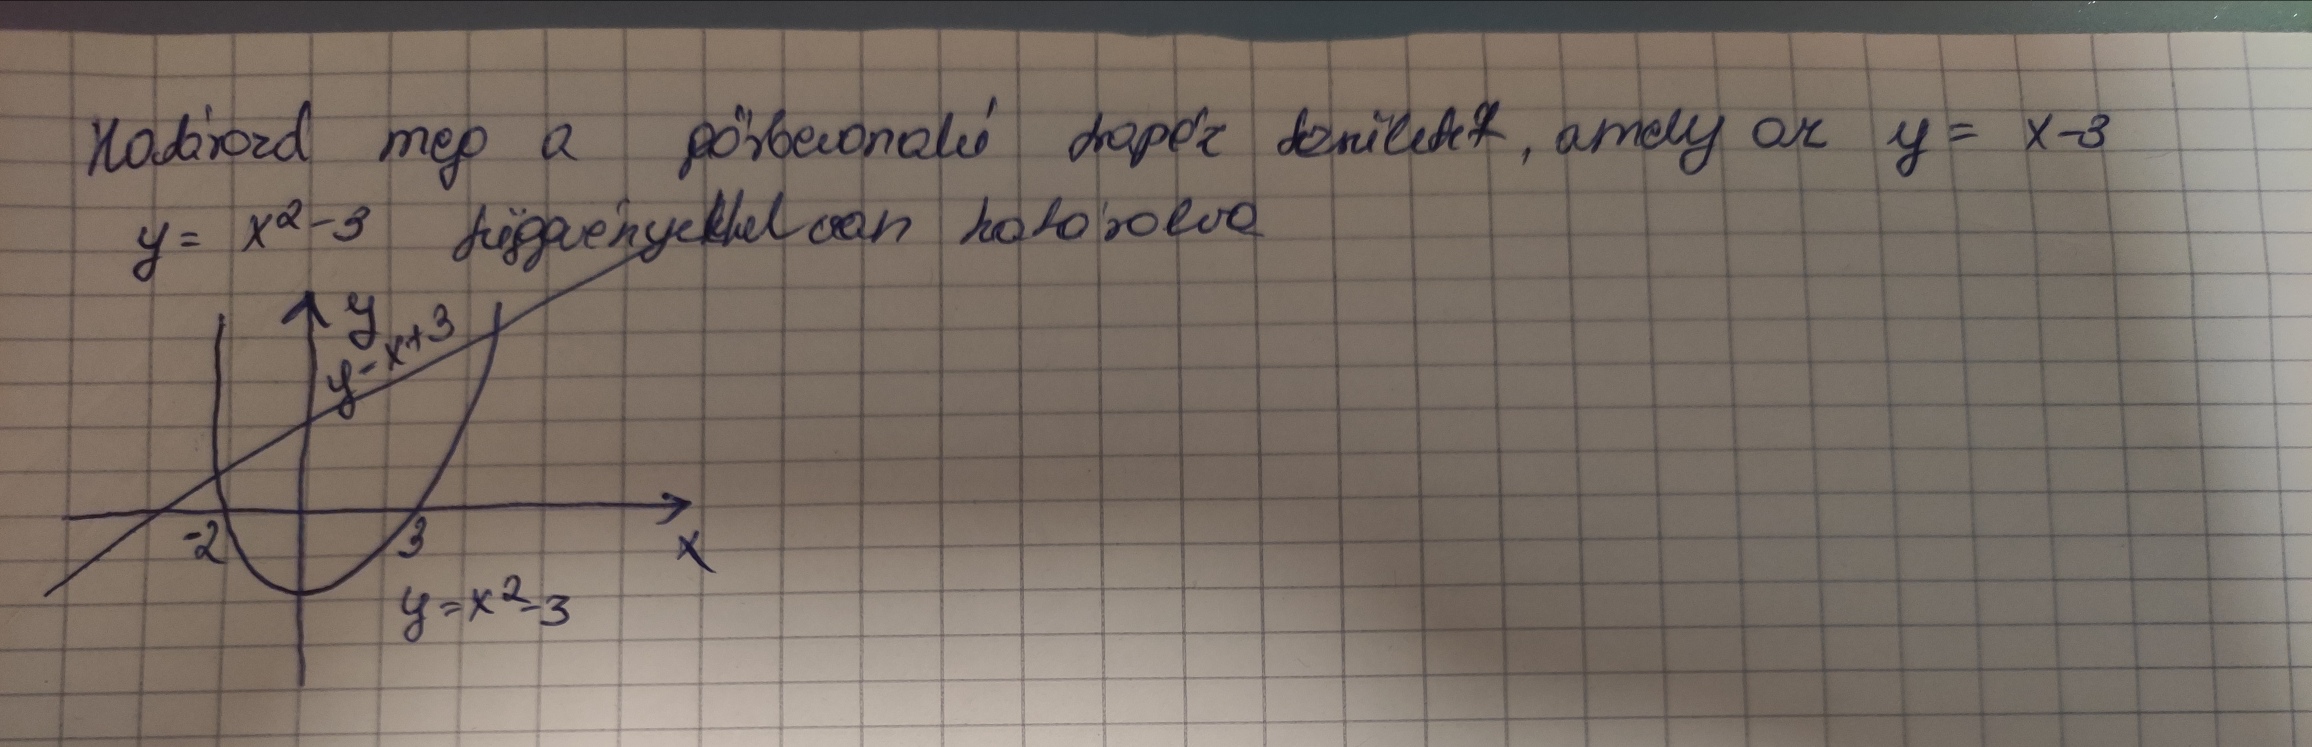 Határozd meg a görbevonalú trapéz területét, amely az y = x-3
y = x²-3 függvényekkel van határolva
y
y=x+3
-2
3
x
y=x²-3